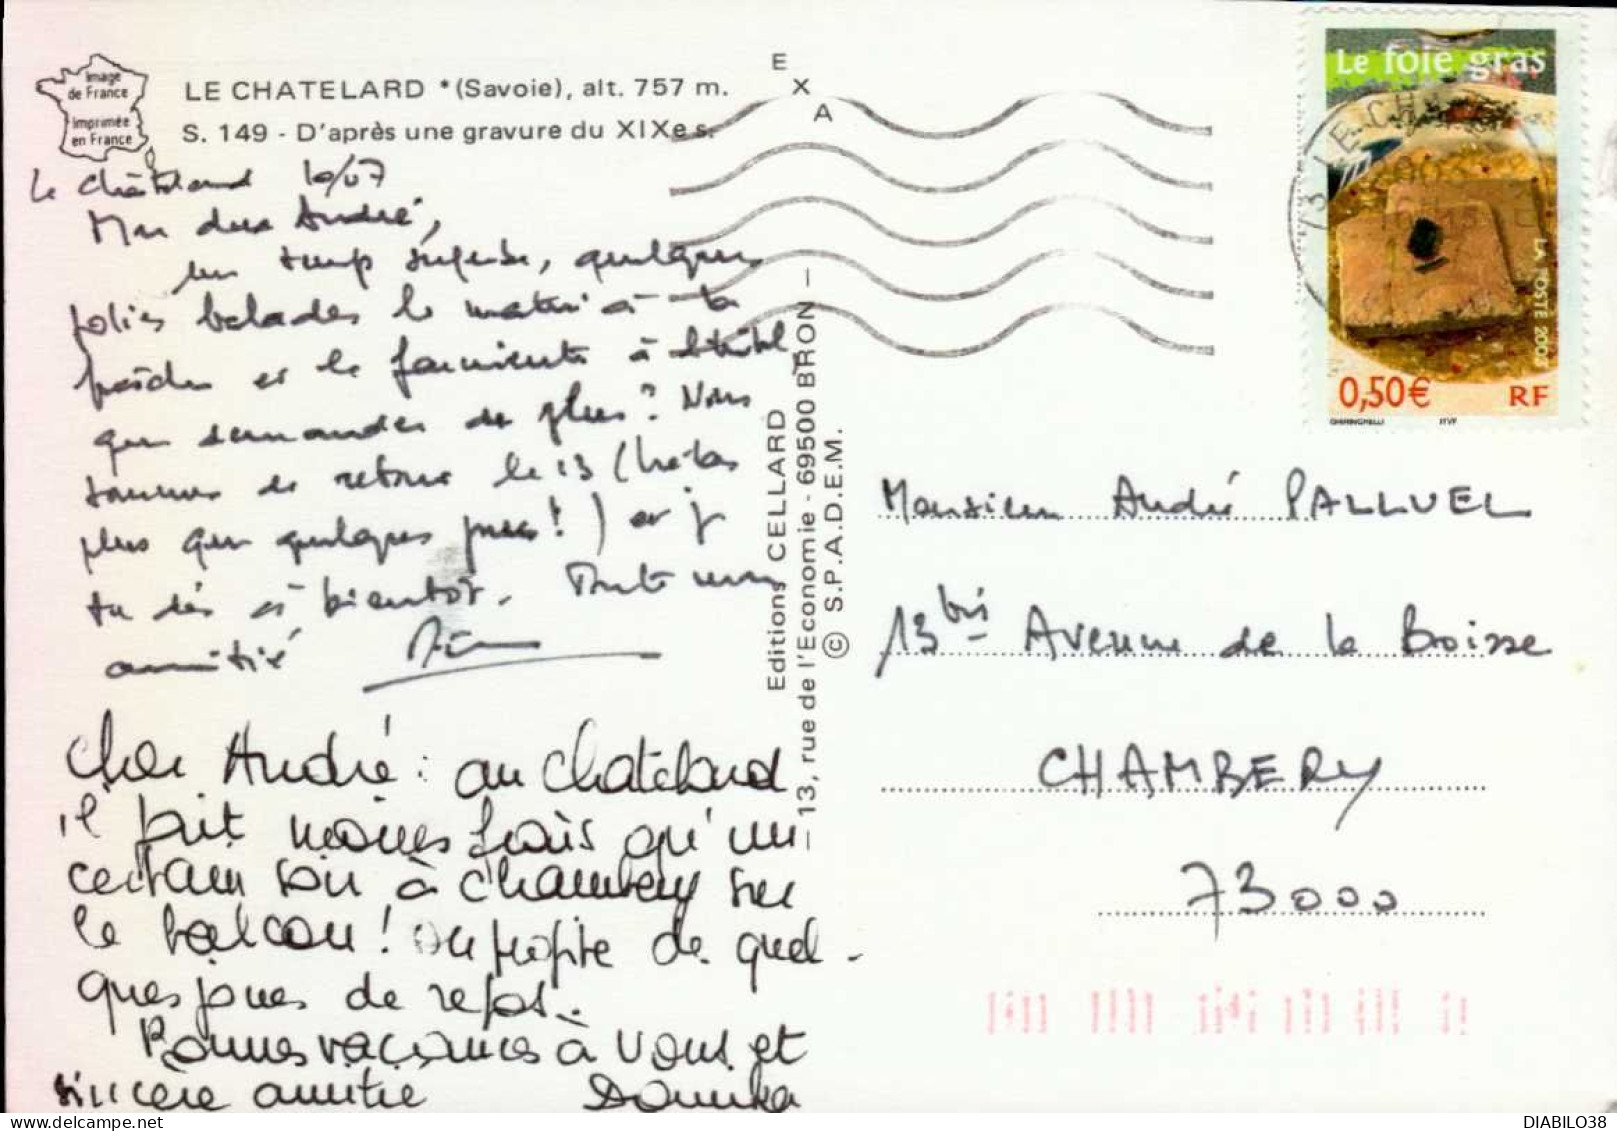 Image
de France
Imprimée
en France
LE CHATELARD * (Savoie), alt. 757 m.
S. 149 - D'après une gravure du XIXe s.
Le Châtelard 10/07
Mon cher André,
un temps superbe, quelques
jolies balades le matin à la
et le farniente à
que demander de plus? Nous
sommes de retour le 13 (hélas
plus que quelques jours!) et je
te dis à bientôt. Toute mon
amitié
Cher André : au Chatelard
il fait moins frais qu'un
certain soir à Chambery sur
le balcon! On profite de quel-
ques jours de repos.
Bonnes vacances à vous et
sincère amitié Dominika
EXA
Editions CELLARD
13, rue de l'Economie - 69500 BRON
© S.P.A.D.E.M.
Le foie gras
73 LE CH
LA POSTE 2003
0,50€ RF
ITVF
Monsieur André PALLUEL
13 bis Avenue de la Boisse
CHAMBERY
73000
DIABILO38